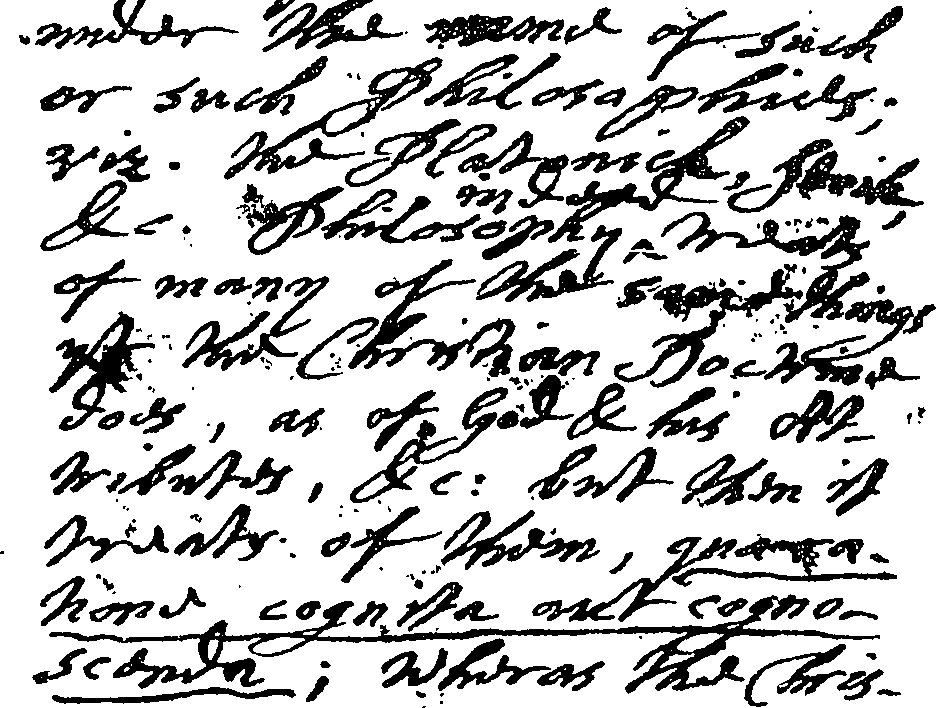 under the name of such
or such Philosophies,
viz. the Platonick, Stoick,
&c. Philosophy, indeed treats
of many of the same things
yt the Christian Doctrine
does, as of God & his At-
tributes, &c: but then it
treats of them, quoad ra-
tione cognita aut cogno-
scenda; wheras the Chris-